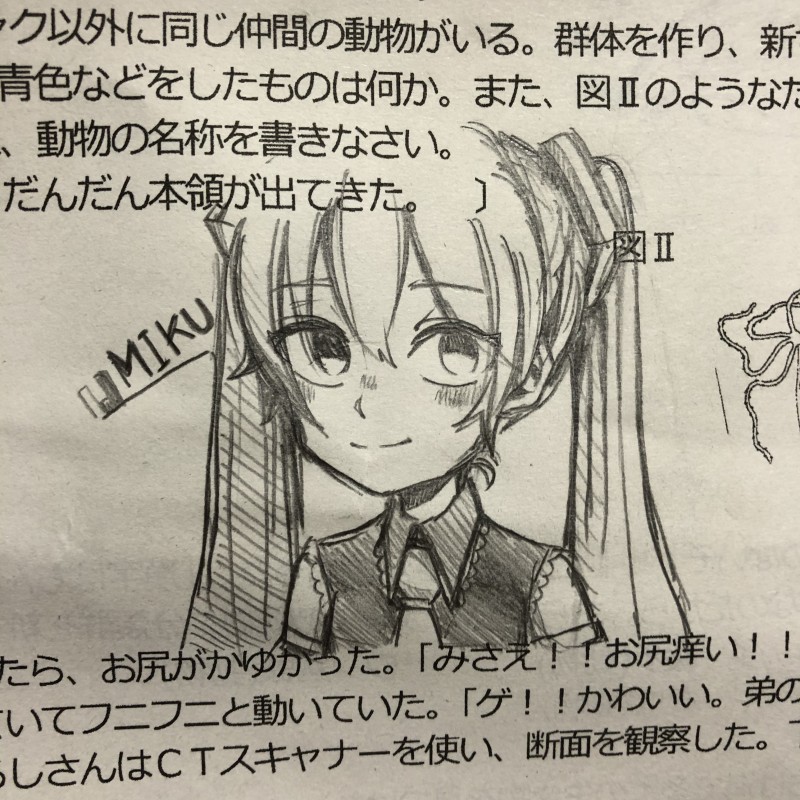 ク以外に同じ仲間の動物がいる。群体を作り、新
青色などをしたものは何か。また、図Ⅱのようなた
、動物の名称を書きなさい。
だんだん本領が出てきた。 〕
図Ⅱ
MIKU
たら、お尻がかゆかった。「みさえ！！お尻痒い！！
いてフニフニと動いていた。「ゲ！！かわいい。弟の
しさんはＣＴスキャナーを使い、断面を観察した。